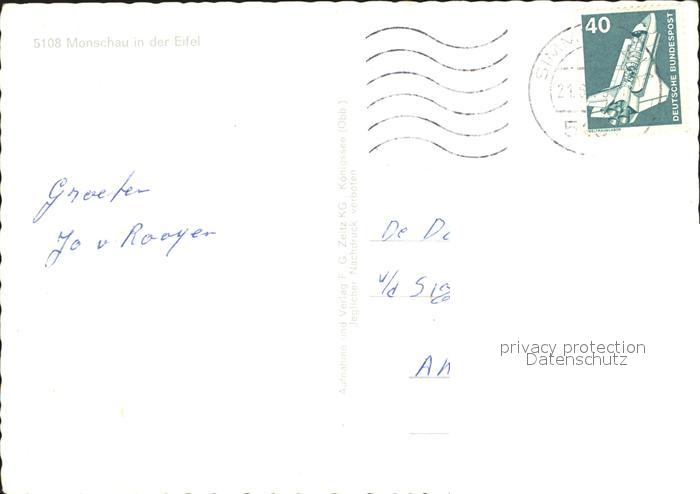 5108 Monschau in der Eifel
40
DEUTSCHE BUNDESPOST
WELTRAUMLABOR
SIM
21.
5
Groeten
Jo v Rooyen
Aufnahme und Verlag F. G. Zeitz KG., Königssee (Obb.)
Jeglicher Nachdruck verboten
De D
v/d Sig
AN
privacy protection
Datenschutz